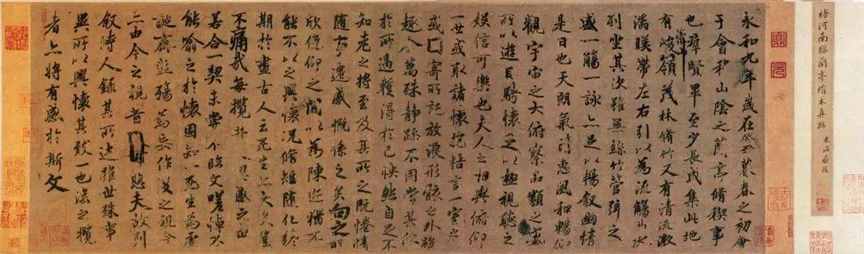 褚河南臨蘭亭絹本真跡
永和九年歲在癸丑暮春之初會
于會稽山陰之蘭亭脩稧事
也羣賢畢至少長咸集此地
有崇山峻領茂林脩竹又有清流激
湍暎帶左右引以為流觴曲水
列坐其次雖無絲竹管弦之
盛一觴一詠亦足以暢敘幽情
是日也天朗氣清惠風和暢仰
觀宇宙之大俯察品類之盛
所以遊目騁懷足以極視聽之
娛信可樂也夫人之相與俯仰
一世或取諸懷抱悟言一室之
或寄所託放浪形骸之外雖
趣舍萬殊靜躁不同當其欣
於所遇蹔得於己怏然自足不
知老之將至及其所之既惓情
隨事遷感慨係之矣向之所
欣俛仰之閒以為陳迹猶不
能不以之興懷況脩短隨化終
期於盡古人云死生亦大矣豈
不痛哉每攬昔人興感之由
若合一契未嘗不臨文嗟悼不
能喻之於懷固知一死生為虛
誕齊彭殤為妄作後之視今
亦由今之視昔悲夫故列
敘時人錄其所述雖世殊事
異所以興懷其致一也後之攬
者亦將有感於斯文